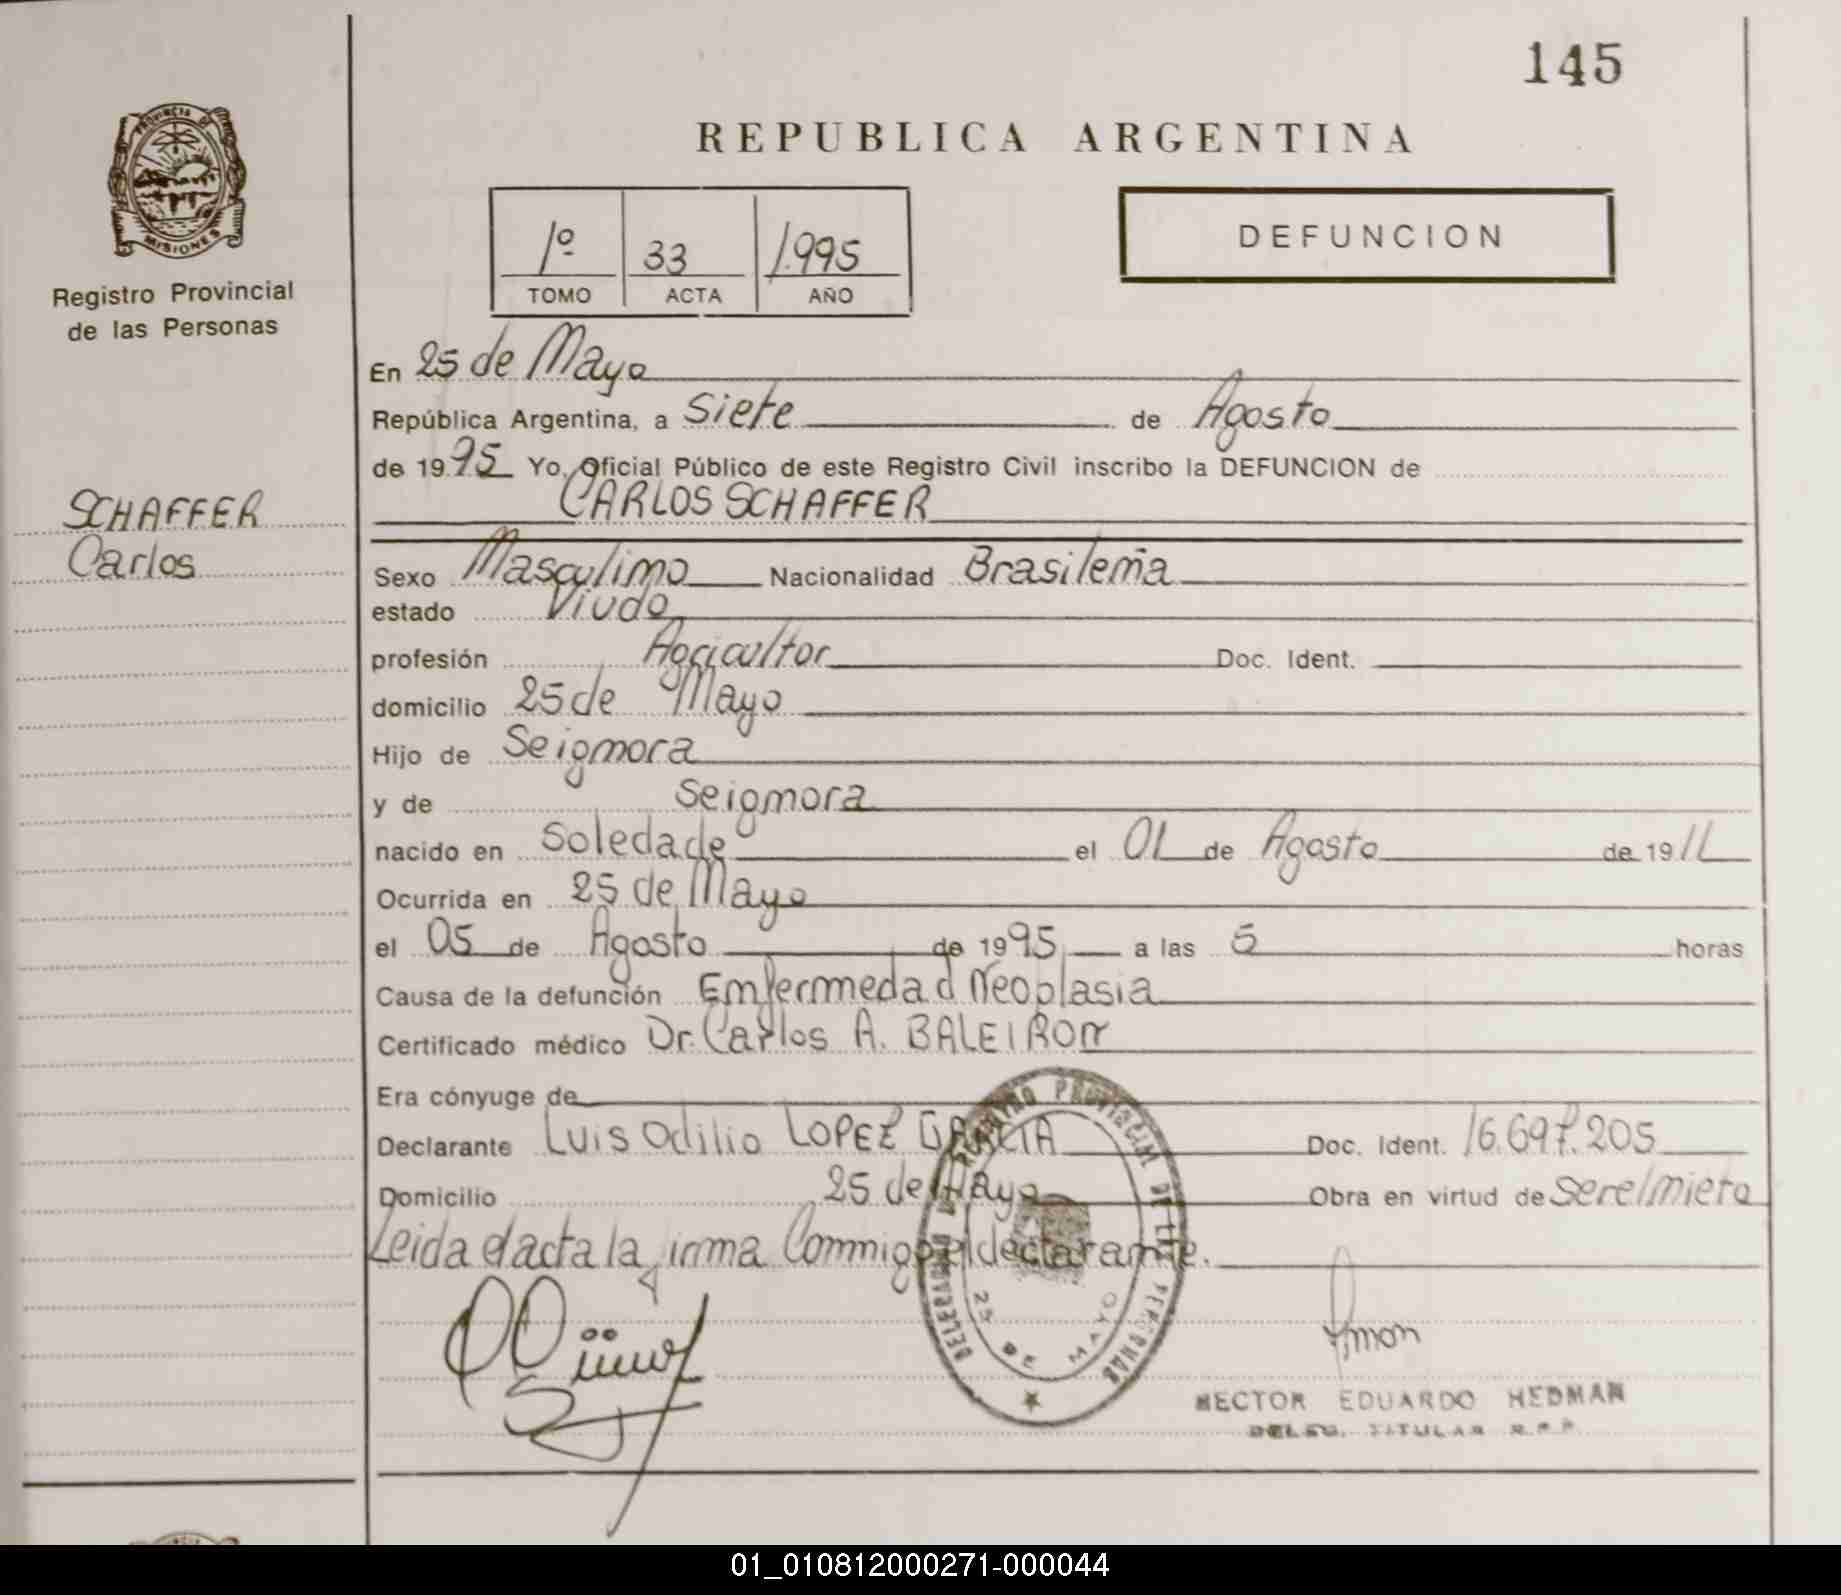 145
REPUBLICA ARGENTINA
PROVINCIA DE
MISIONES
Registro Provincial
de las Personas
1º 33 1.995
TOMO ACTA AÑO
DEFUNCION
En 25 de Mayo
República Argentina, a Siete de Agosto
de 1995 Yo, Oficial Público de este Registro Civil inscribo la DEFUNCION de
CARLOS SCHAFFER
SCHAFFER
Carlos
Sexo Masculino Nacionalidad Brasileña
estado Viudo
profesión Agricultor Doc. Ident.
domicilio 25 de Mayo
Hijo de Seignora
y de Seignora
nacido en Soledade el 01 de Agosto de 1911
Ocurrida en 25 de Mayo
el 05 de Agosto de 1995 a las 5 horas
Causa de la defunción Enfermedad Neoplasia
Certificado médico Dr. Carlos A. BALEIRON
Era cónyuge de
Declarante Luis Odilio LOPEZ GARCIA Doc. Ident. 16.697.205
Domicilio 25 de Mayo Obra en virtud de
Leida el acta la firma Conmigo el declarante.
DELEGACION REGISTRO PROVINCIAL DE LAS PERSONAS
25 DE MAYO
HECTOR EDUARDO HEDMAN
DELEG. TITULAR R.P.P.
01_010812000271-000044